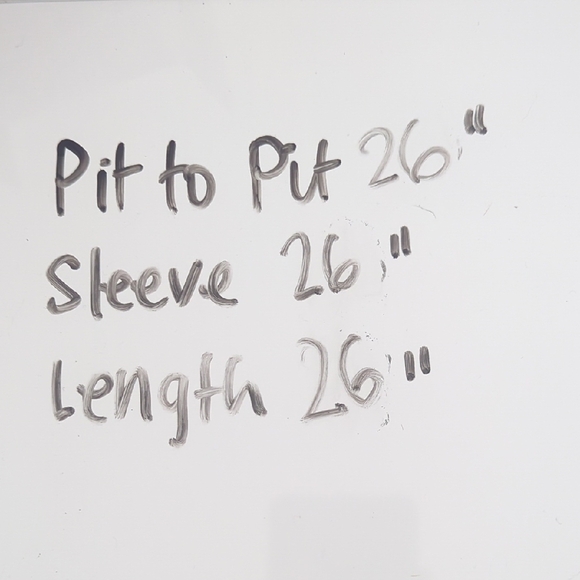 Pit to Pit 26"
Sleeve 26"
Length 26"